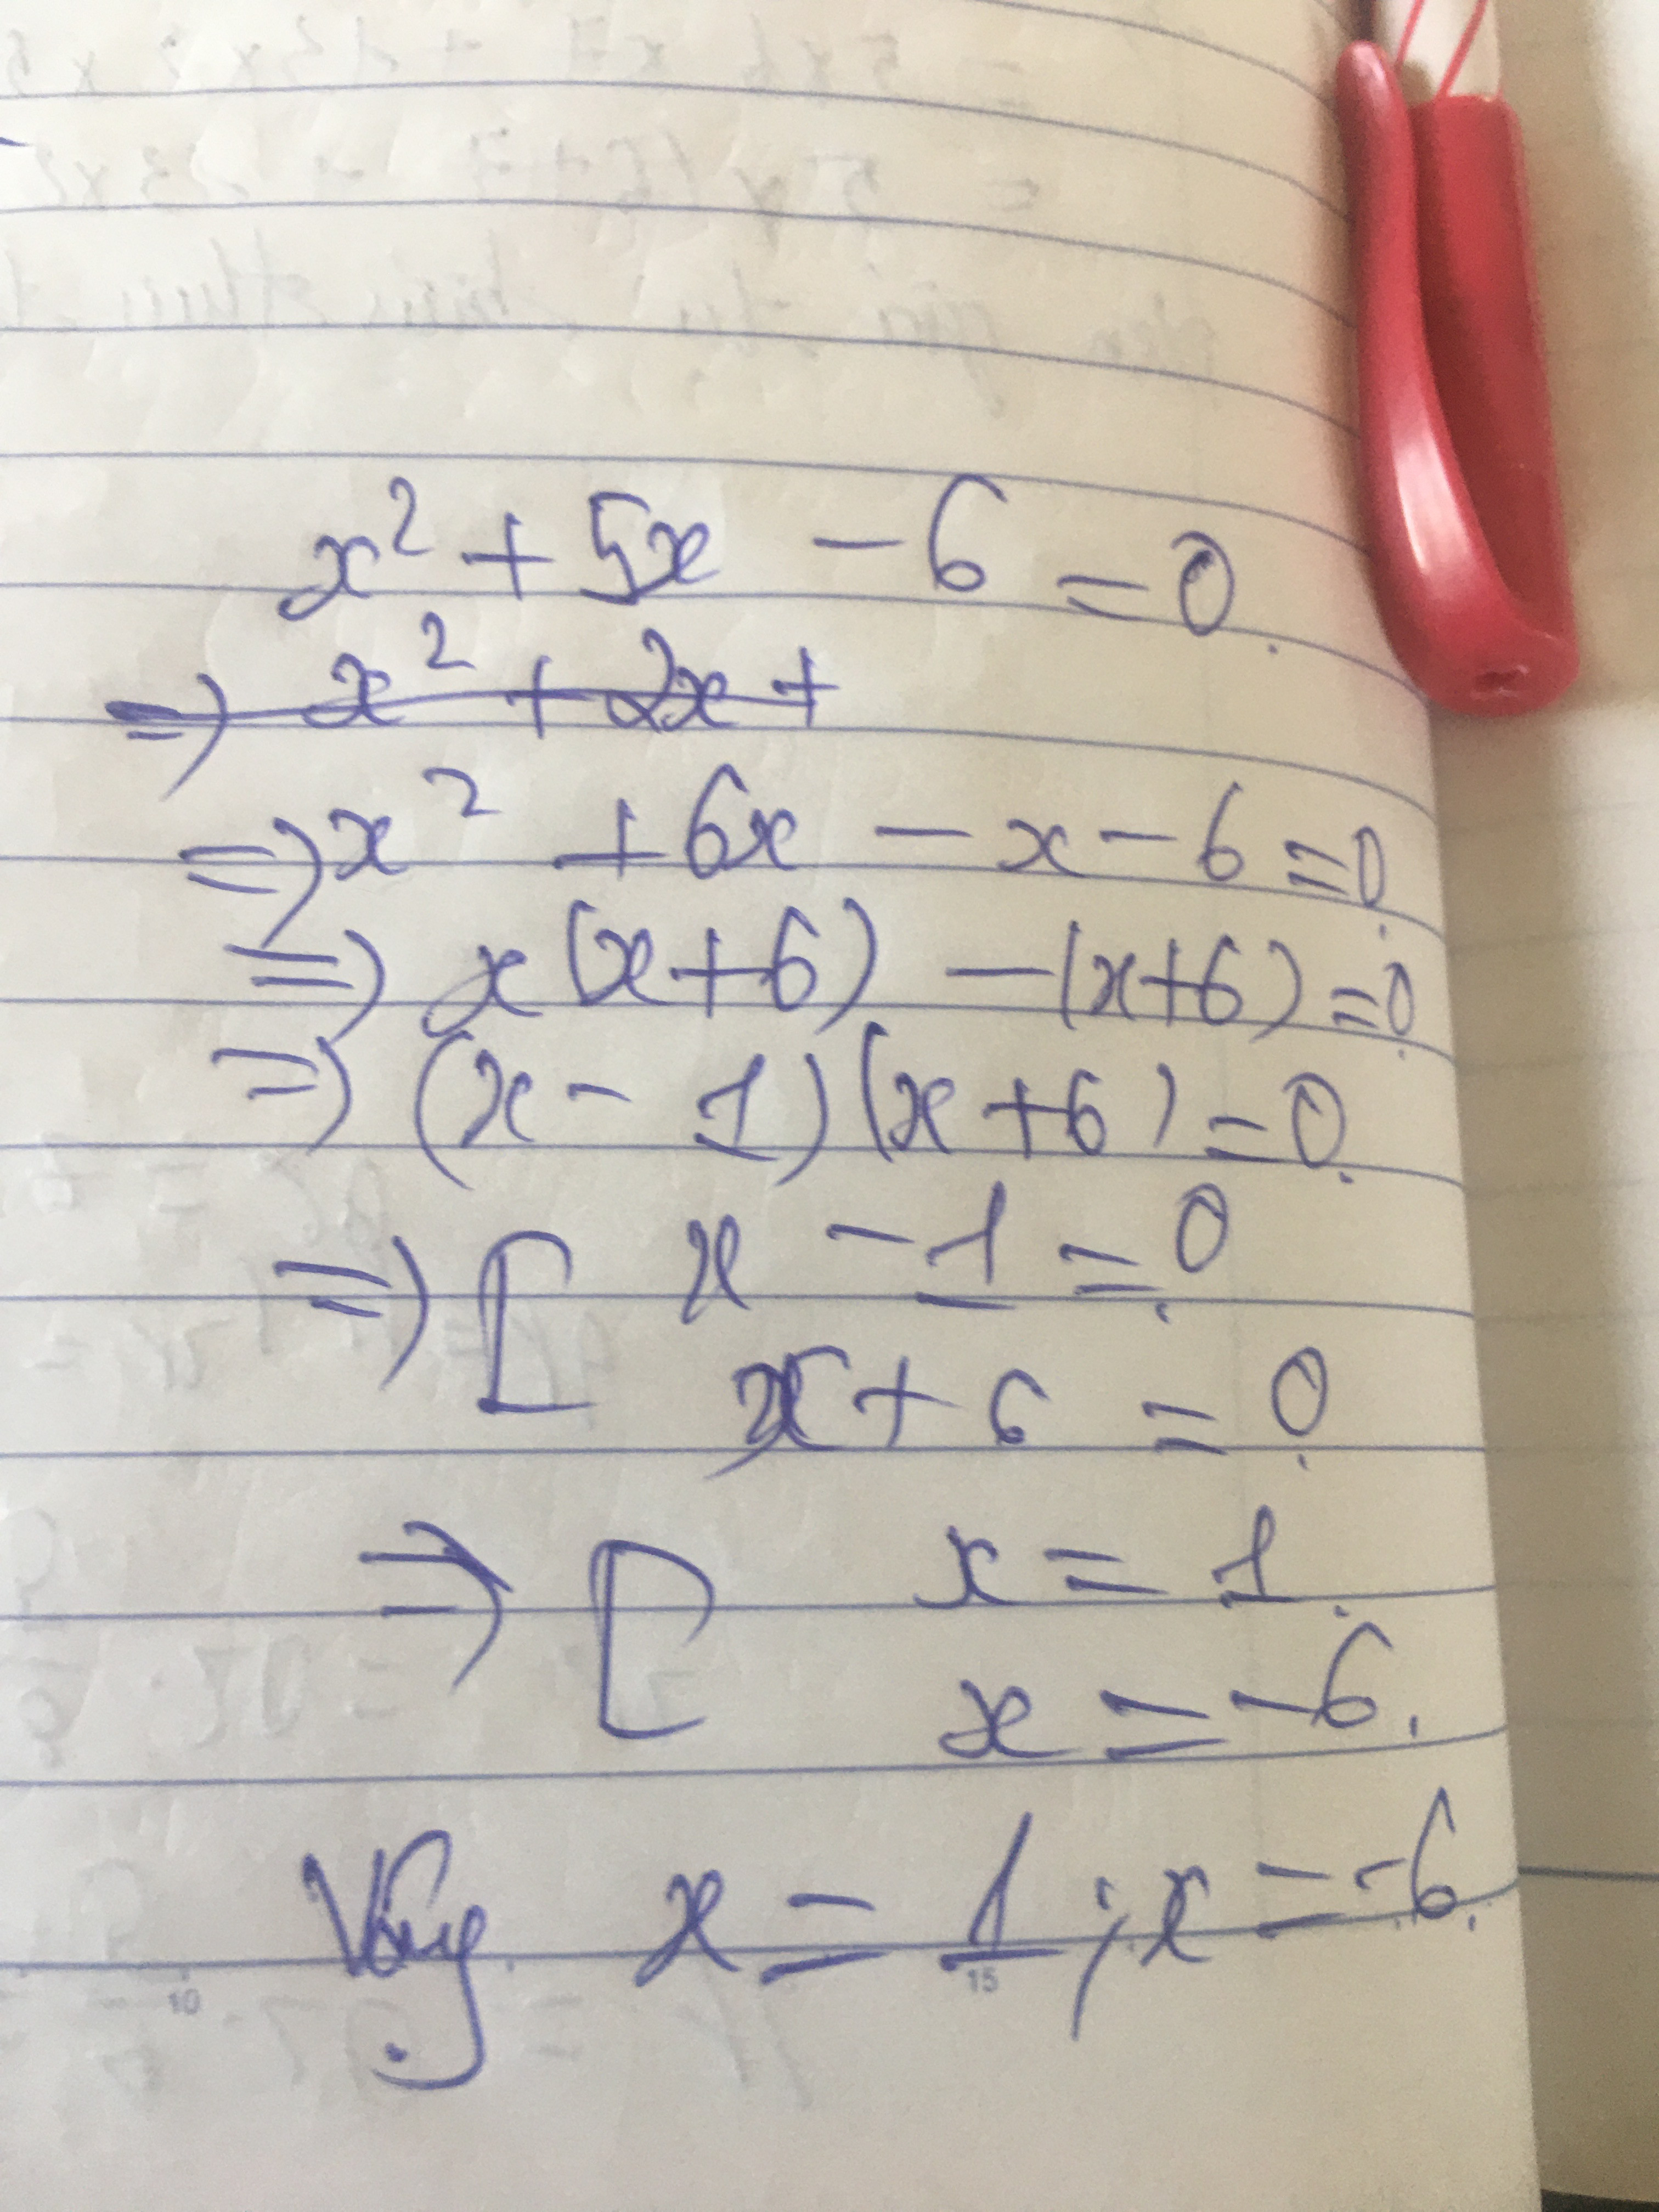 x² + 5x - 6 = 0.
=> x² + 2x +
=> x² + 6x - x - 6 = 0.
=> x(x+6) - (x+6) = 0.
=> (x - 1)(x + 6) = 0.
=> [ x - 1 = 0.
x + 6 = 0.
=> [ x = 1.
x = -6.
Vậy x = 1 ; x = -6.
10 15